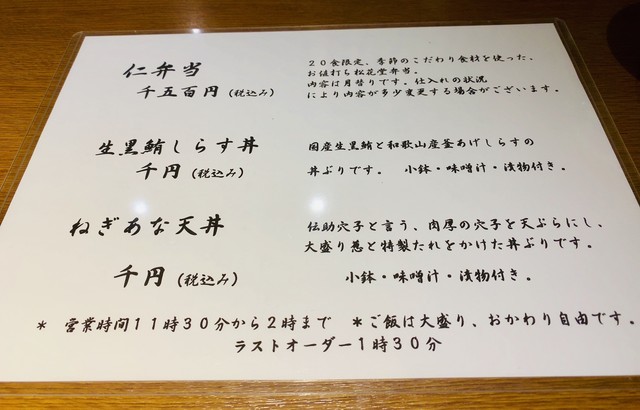 仁弁当
千五百円（税込み）
２０食限定、季節のこだわり食材を使った、
お値打ち松花堂弁当。
内容は月替りです。仕入れの状況
により内容が多少変更する場合がございます。
生黒鮪しらす丼
千円（税込み）
国産生黒鮪と和歌山産釜あげしらすの
丼ぶりです。　小鉢・味噌汁・漬物付き。
ねぎあな天丼
千円（税込み）
伝助穴子と言う、肉厚の穴子を天ぷらにし、
大盛り葱と特製たれをかけた丼ぶりです。
小鉢・味噌汁・漬物付き．
＊　営業時間１１時３０分から２時まで　＊ご飯は大盛り、おかわり自由です。
ラストオーダー１時３０分